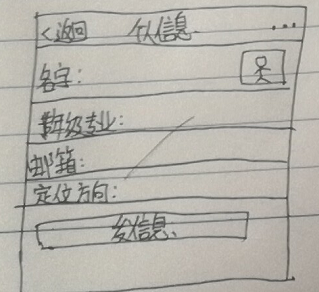 <返回 个人信息 ...
名字：
年级专业：
邮箱：
定位方向：
发信息